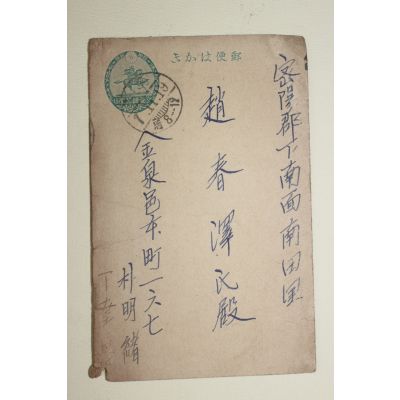 郵便はかき
密陽郡下南面南田里
趙春澤氏殿
金泉邑本町一六七
朴明緖